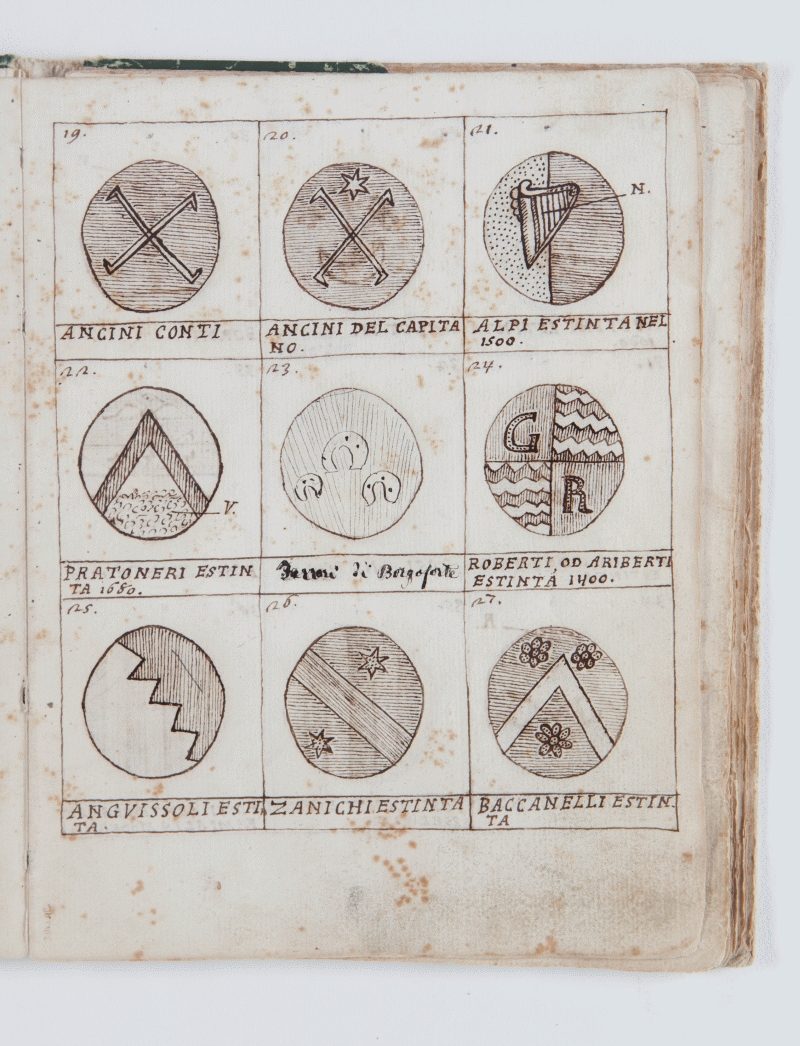 19.
20.
21.
N.
ANCINI CONTI
ANCINI DEL CAPITA
NO.
ALPI ESTINTA NEL
1500.
22.
23.
24.
G
R
V.
PRATONERI ESTIN
TA 1680.
di Borgoforte
ROBERTI, OD ARIBERTI
ESTINTA 1400.
25.
26.
27.
ANGVISSOLI ESTI
TA.
ZANICHI ESTINTA
BACCANELLI ESTIN.
TA